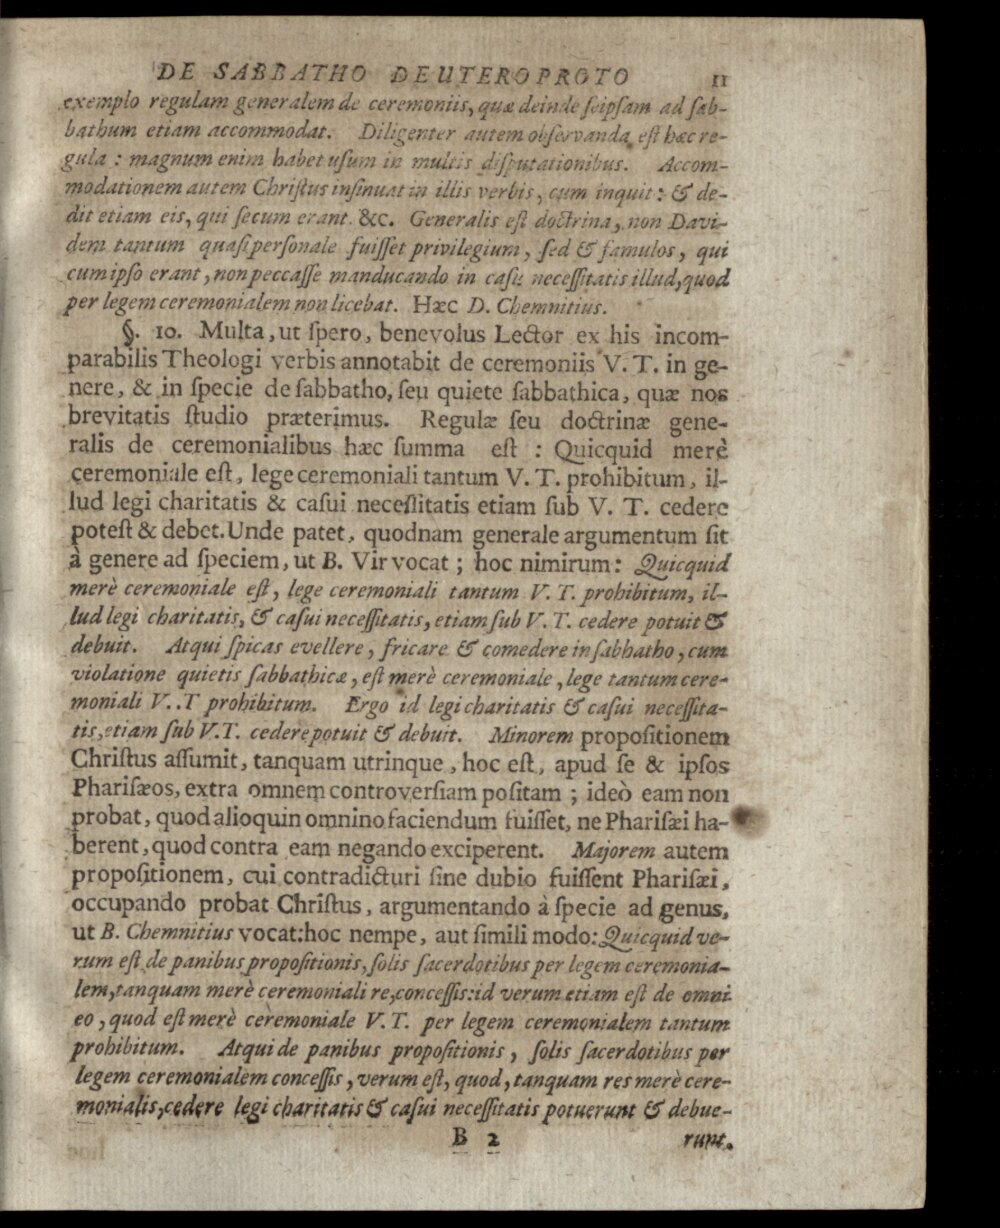 DE SABBATHO DEUTEROPROTO 11
exemplo regulam generalem de ceremoniis, quæ deinde ſeipſam ad ſab-
bathum etiam accommodat. Diligenter autem obſervanda eſt hæc re-
gula : magnum enim habet uſum in multis diſputationibus. Accom-
modationem autem Chriſtus inſinuat in illis verbis, cum inquit: & de-
dit etiam eis, qui ſecum erant. &c. Generalis eſt doctrina, non Davi-
dem tantum quaſi perſonale fuiſſet privilegium, ſed & famulos, qui
cum ipſo erant, non peccaſſe manducando in caſu neceſſitatis illud, quod
per legem ceremonialem non licebat. Hæc D. Chemnitius.
§. 10. Multa, ut ſpero, benevolus Lector ex his incom-
parabilis Theologi verbis annotabit de ceremoniis V. T. in ge-
nere, & in ſpecie de ſabbatho, ſeu quiete ſabbathica, quæ nos
brevitatis ſtudio præterimus. Regulæ ſeu doctrinæ gene-
ralis de ceremonialibus hæc ſumma eſt : Quicquid merè
ceremoniale eſt, lege ceremoniali tantum V. T. prohibitum, il-
lud legi charitatis & caſui neceſſitatis etiam ſub V. T. cedere
poteſt & debet. Unde patet, quodnam generale argumentum ſit
à genere ad ſpeciem, ut B. Vir vocat ; hoc nimirum: Quicquid
merè ceremoniale eſt, lege ceremoniali tantum V. T. prohibitum, il-
lud legi charitatis, & caſui neceſſitatis, etiam ſub V. T. cedere potuit &
debuit. Atqui ſpicas evellere, fricare & comedere in ſabbatho, cum
violatione quietis ſabbathicæ, eſt merè ceremoniale, lege tantum cere-
moniali V. .T prohibitum. Ergo id legi charitatis & caſui neceſſita-
tis, etiam ſub V.T. cedere potuit & debuit. Minorem propoſitionem
Chriſtus aſſumit, tanquam utrinque, hoc eſt, apud ſe & ipſos
Phariſæos, extra omnem controverſiam poſitam ; ideò eam non
probat, quod alioquin omnino faciendum fuiſſet, ne Phariſæi ha-
berent, quod contra eam negando exciperent. Majorem autem
propoſitionem, cui contradicturi ſine dubio fuiſſent Phariſæi,
occupando probat Chriſtus, argumentando à ſpecie ad genus,
ut B. Chemnitius vocat: hoc nempe, aut ſimili modo: Quicquid ve-
rum eſt de panibus propoſitionis, ſolis ſacerdotibus per legem ceremonia-
lem, tanquam merè ceremoniali re, conceſſis: id verum etiam eſt de omni
eo, quod eſt merè ceremoniale V. T. per legem ceremonialem tantum
prohibitum. Atqui de panibus propoſitionis, ſolis ſacerdotibus per
legem ceremonialem conceſſis, verum eſt, quod, tanquam res merè cere-
monialis, cedere legi charitatis & caſui neceſſitatis potuerunt & debue-
B 2 runt.